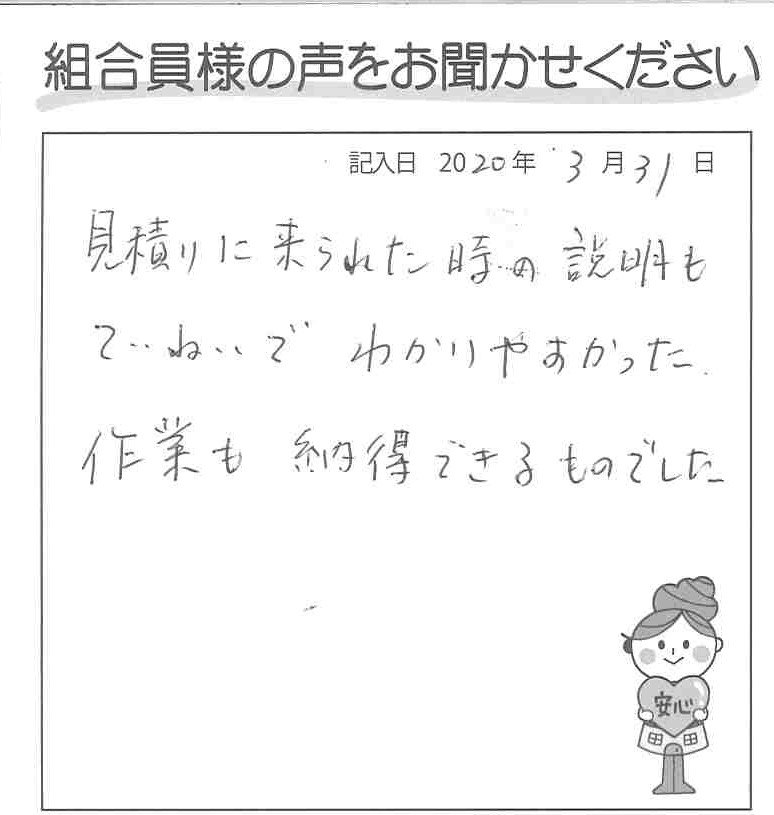 組合員様の声をお聞かせください
記入日 2020年 3月31日
見積りに来られた時の説明も
ていねいで わかりやすかった.
作業も 納得できるものでした
安心